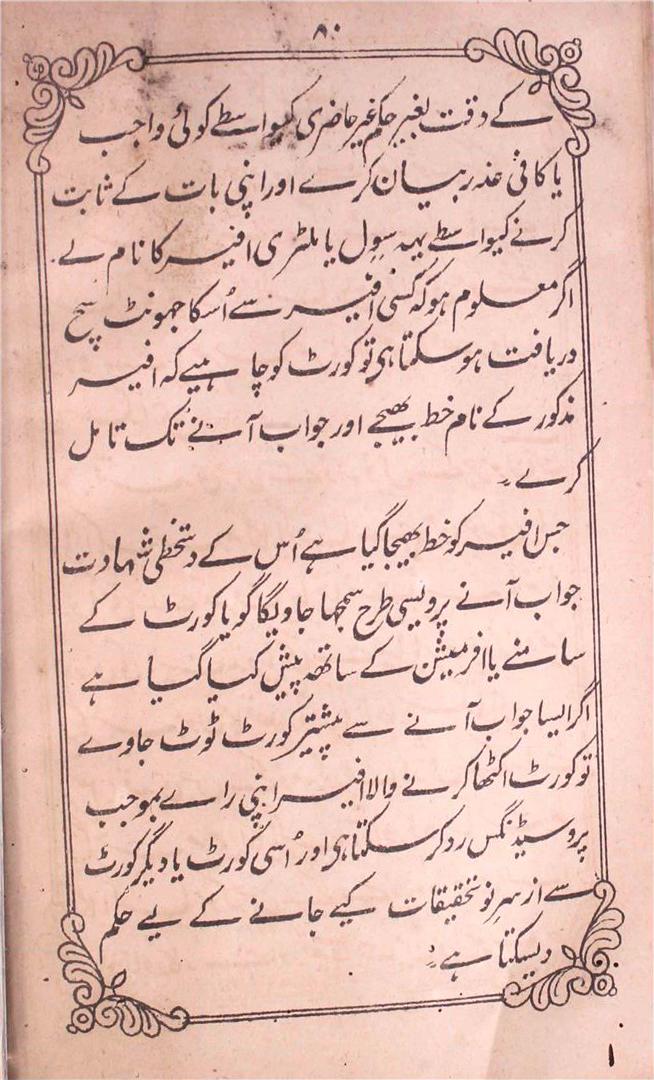 ۸۰
کے وقت بغیر حکم غیر حاضری کیواسطے کوئی واجب
یا کافی عذر بیان کرے اور اپنی بات کے ثابت
کرنے کیواسطے یہہ سول یا ملٹری افیسر کا نام لے۔
اگر معلوم ہو کہ کسی افیسر سے اُسکا جہونٹ سچ
دریافت ہوسکتا ہی تو کورٹ کو چاہیے کہ افیسر
مذکور کے نام خط بھیجے اور جواب آنے تک تامل
کرے۔
جس افیسر کو خط بھیجا گیا ہے اُس کے دستخطی شہادت
جواب آنے پر ویسی طرح سمجھا جاویگا گویا کورٹ کے
سامنے یا افرمیشن کے ساتھ پیش کیا گیا ہے
اگر ایسا جواب آنے سے پیشتر کورٹ ٹوٹ جاوے
تو کورٹ اکٹھا کرنے والا افیسر اپنی راے بموجب
پروسیڈنگس رد کرسکتا ہی اور اُسی کورٹ یا دیگر کورٹ
سے از سرِ نو تحقیقات کیے جانے کے لیے حکم
دیسکتا ہے۔
۱